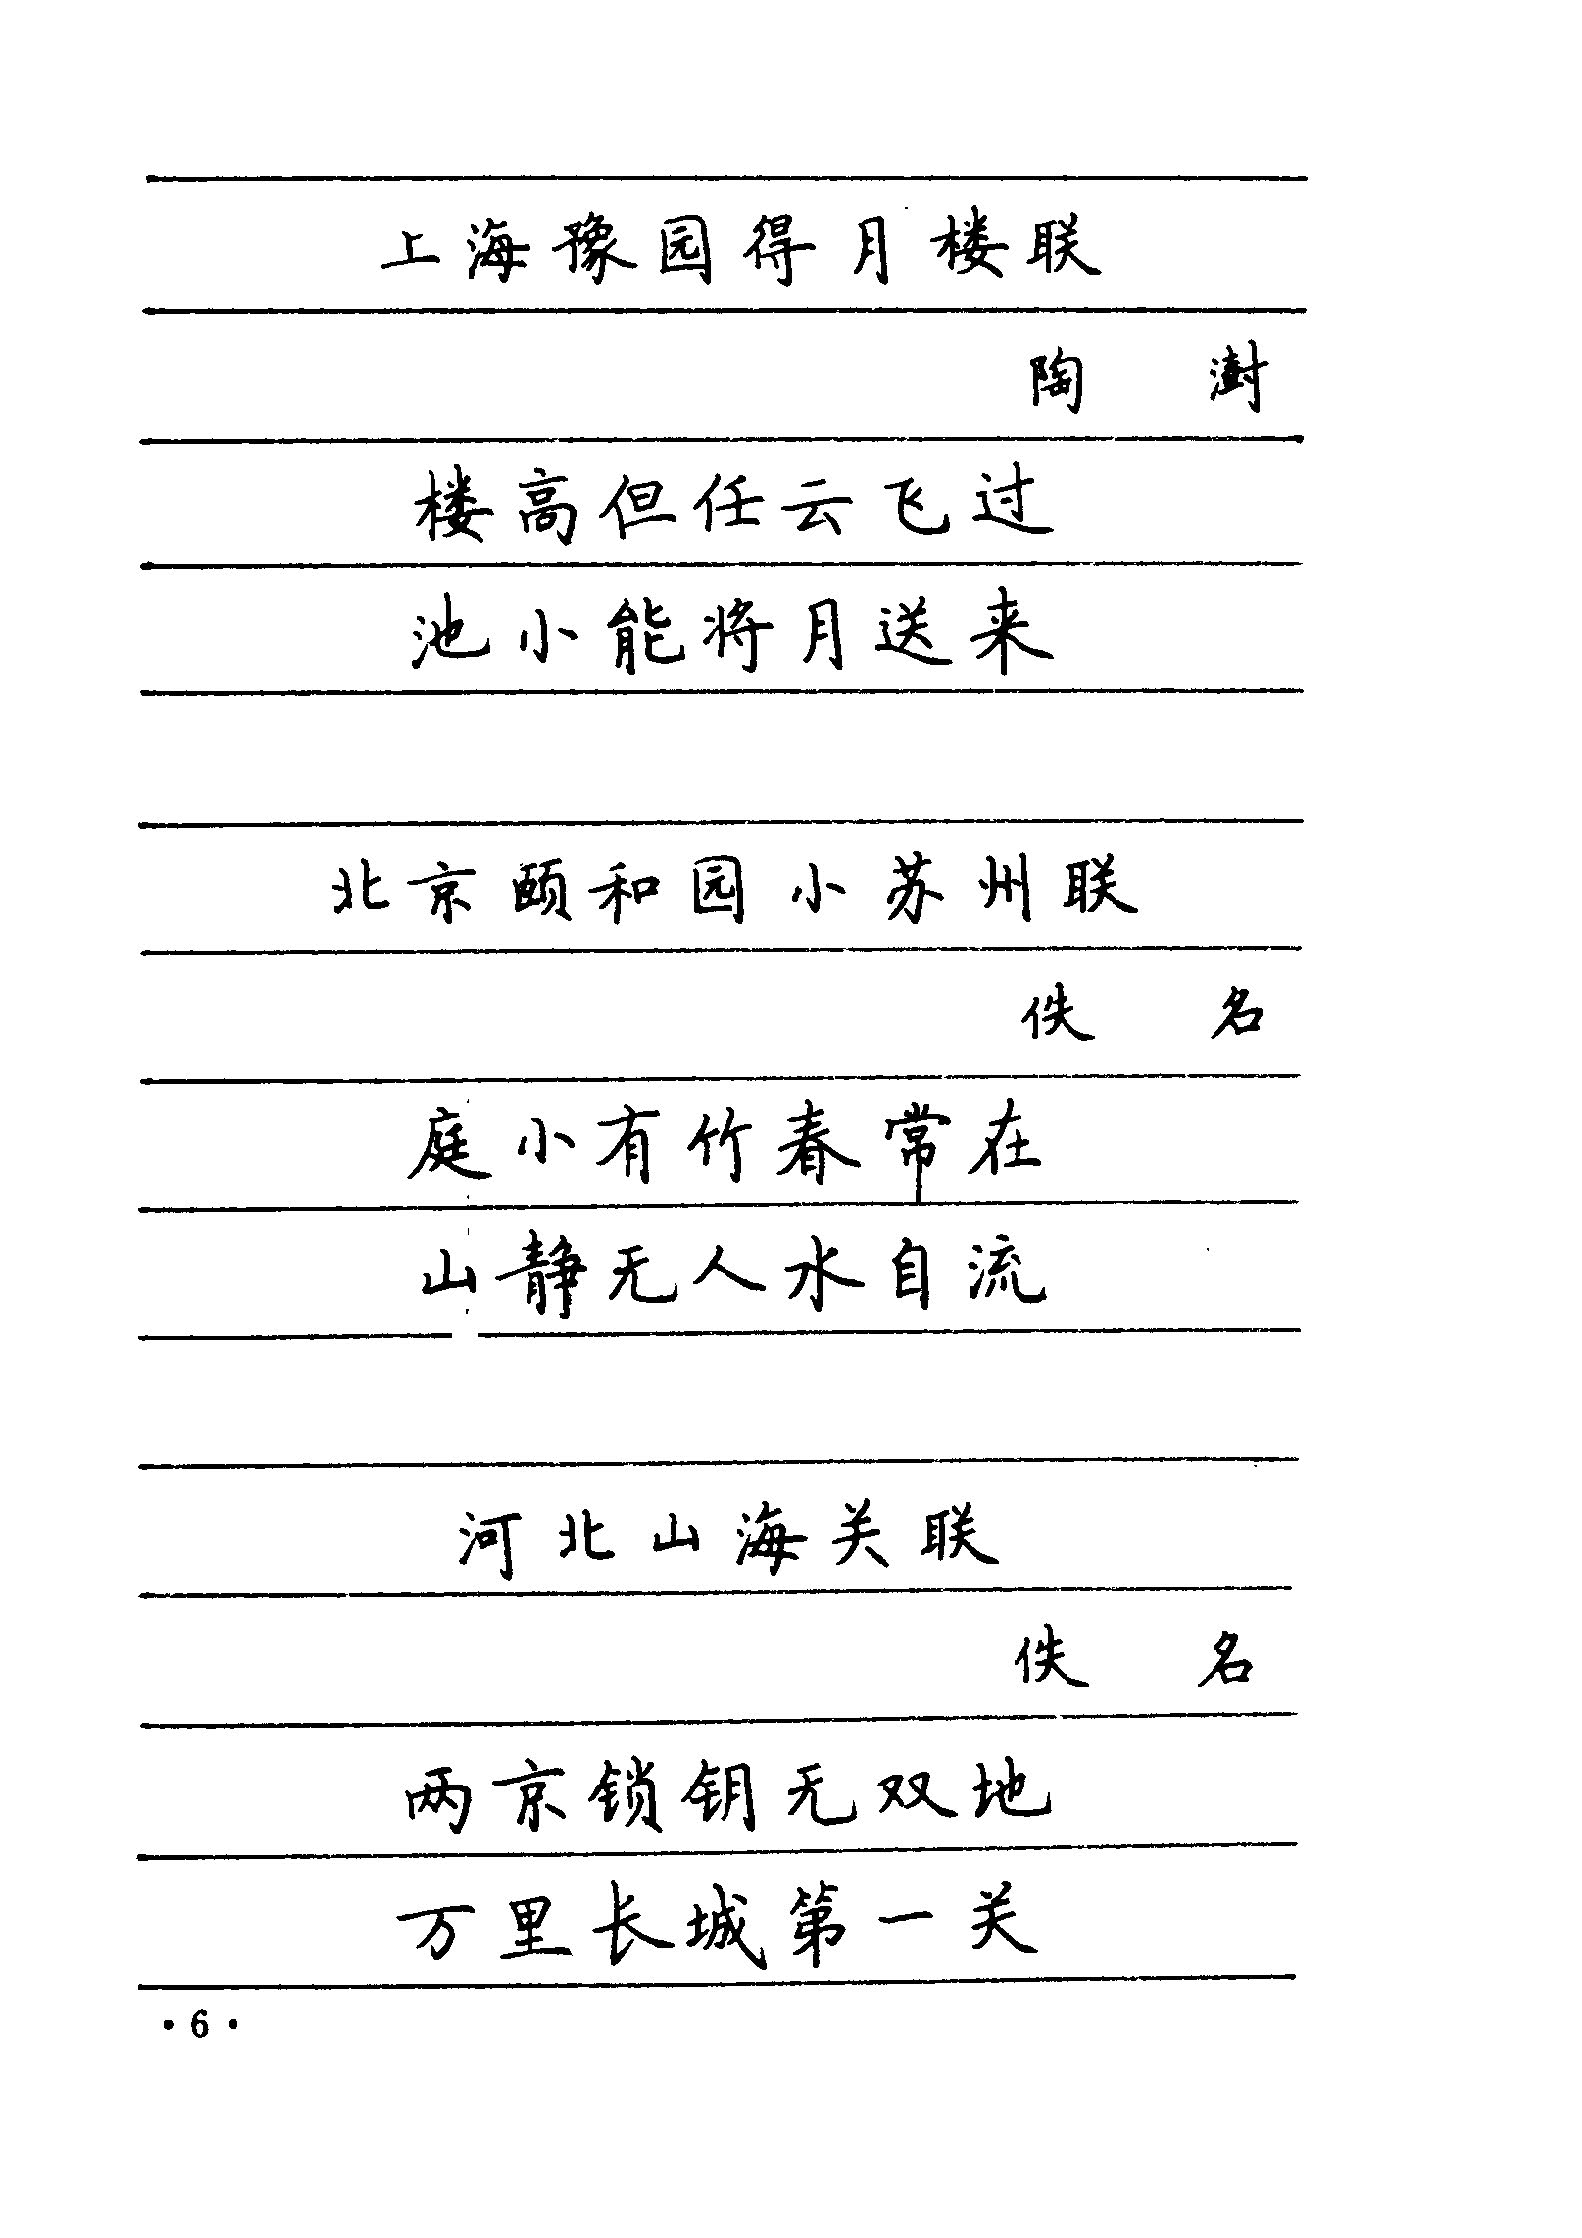 上海豫园得月楼联
陶 澍
楼高但任云飞过
池小能将月送来
北京颐和园小苏州联
佚 名
庭小有竹春常在
山静无人水自流
河北山海关联
佚 名
两京锁钥无双地
万里长城第一关
·6·